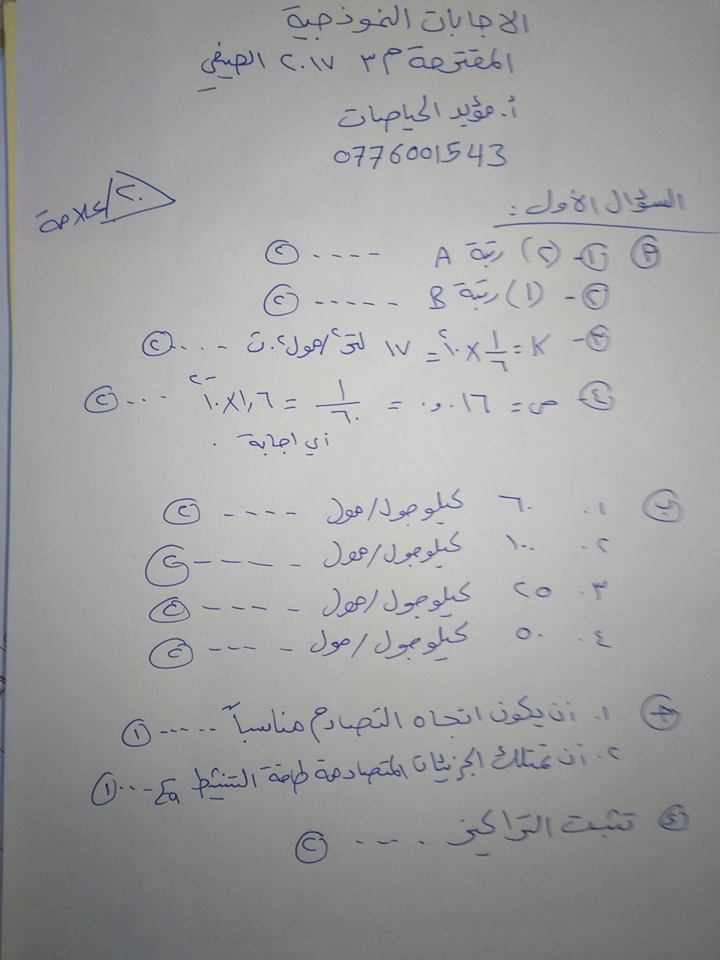 الاجابات النموذجية
المقترحة م٣ ٢٠١٧ الصيفي
أ. مؤيد الحياصات
0776001543
٢٠/علامة
السؤال الأول :
أ ١- (٢) رتبة A ---- ٢
٢- (١) رتبة B ----- ٢
٣- K = ١/٦ × ١٠٢ = ١٧ لتر٢/مول٢.ث ---- ٢
٤- ص = ٠,٠١٦ = ١/٦٠ = ١,٦×١٠-٢ ... ٢
أي اجابة .
ب ١. ٦٠ كيلوجول/مول ---- ٢
٢. ١٠٠ كيلوجول/مول ---- ٢
٣. ٢٥ كيلوجول/مول ---- ٢
٤. ٥٠ كيلوجول/مول ---- ٢
ج ١. أن يكون اتجاه التصادم مناسباً ----- ١
٢. أن تمتلك الجزيئات المتصادمة طاقة التنشيط Ea --- ١
د تثبت التراكيز ---- ٢